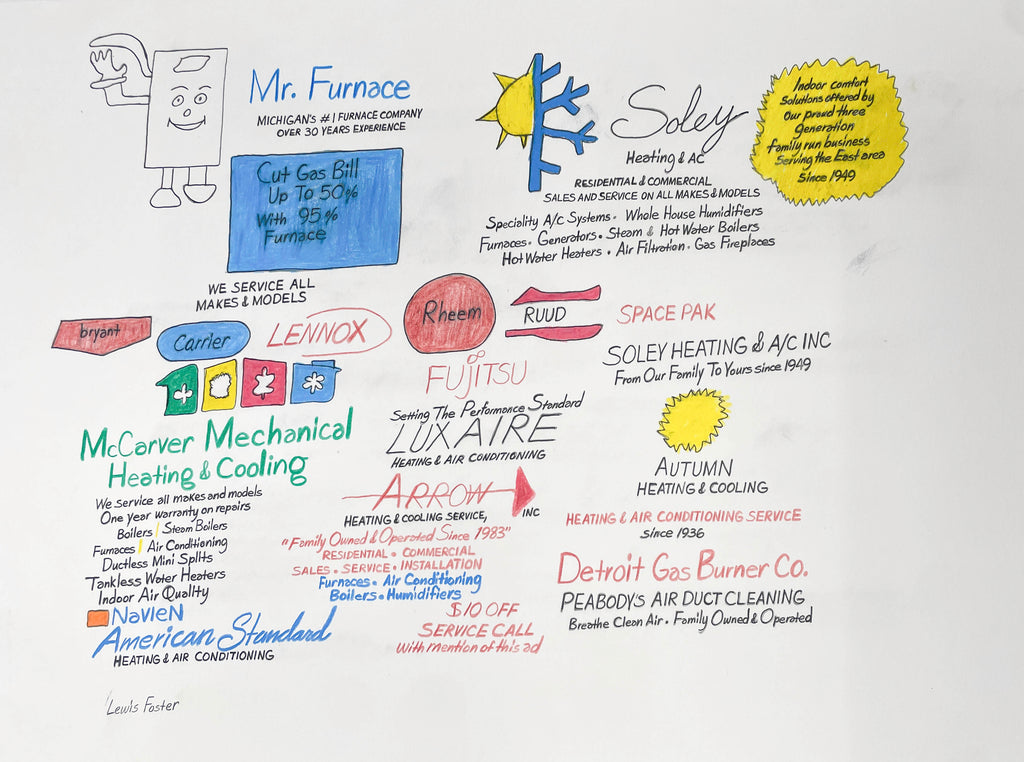 Mr. Furnace
MICHIGAN'S #1 FURNACE COMPANY
OVER 30 YEARS EXPERIENCE
Cut Gas Bill
Up To 50%
With 95%
Furnace
WE SERVICE ALL
MAKES & MODELS
Soley
Heating & AC
RESIDENTIAL & COMMERCIAL
SALES AND SERVICE ON ALL MAKES & MODELS
Speciality A/C Systems · Whole House Humidifiers
Furnaces · Generators · Steam & Hot Water Boilers
Hot Water Heaters · Air Filtration · Gas Fireplaces
Indoor comfort
Solutions offered by
Our proud three
generation
family run business
Serving the East area
Since 1949
bryant
Carrier
LENNOX
Rheem
RUUD
SPACE PAK
FUJITSU
SOLEY HEATING & A/C INC
From Our Family To Yours since 1949
McCarver Mechanical
Heating & Cooling
We service all makes and models
One year warranty on repairs
Boilers | Steam Boilers
Furnaces | Air Conditioning
Ductless Mini Splits
Tankless Water Heaters
Indoor Air Quality
NAVIEN
American Standard
HEATING & AIR CONDITIONING
Setting The Performance Standard
LUXAIRE
HEATING & AIR CONDITIONING
ARROW
HEATING & COOLING SERVICE, INC
"Family Owned & Operated Since 1983"
RESIDENTIAL · COMMERCIAL
SALES · SERVICE · INSTALLATION
Furnaces · Air Conditioning
Boilers · Humidifiers
$10 OFF
SERVICE CALL
with mention of this ad
AUTUMN
HEATING & COOLING
HEATING & AIR CONDITIONING SERVICE
since 1936
Detroit Gas Burner Co.
PEABODY'S AIR DUCT CLEANING
Breathe Clean Air · Family Owned & Operated
Lewis Foster